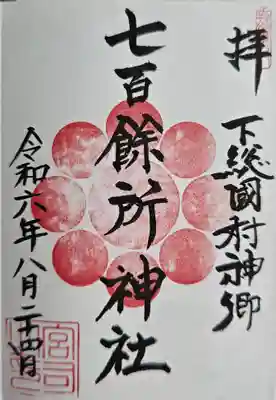 拝
下総國村神郷
七百餘所神社
令和六年八月二十四日